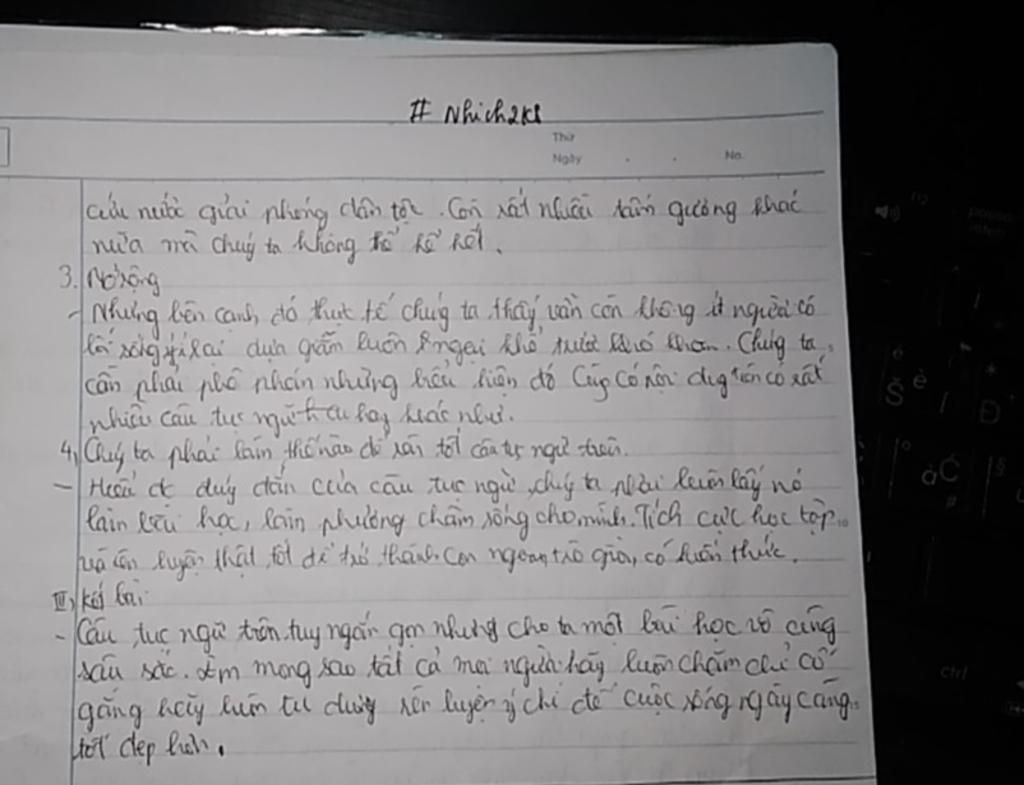 # Nhich2k8
Thứ
Ngày . . No.
cứu nước giải phóng dân tộc. Còn rất nhiều tấm gương khác
nữa mà chúng ta không thể kể hết.
3. Mở rộng
- Nhưng bên cạnh đó thực tế chúng ta thấy vẫn còn không ít người có
lối sống ỷ lại dựa giẫm luôn ngại khổ, trước khó khăn. Chúng ta
cần phải phê phán những biểu hiện đó có rất
nhiều câu tục ngữ hay khác như.
4, Chúng ta phải làm thế nào để tốt câu tục ngữ trên.
- Hiểu đc đúng đắn của câu tục ngữ, chúng ta phải luôn lấy nó
làm bài học, làm phương châm sống cho mình. Tích cực học tập
và rèn luyện thật tốt để trở thành con ngoan trò giỏi, có kiến thức.
III, Kết bài
- Câu tục ngữ trên tuy ngắn gọn nhưng cho ta một bài học vô cùng
sâu sắc. Em mong sao tất cả mọi người hãy luôn chăm chỉ cố
gắng hãy luôn tu dưỡng rèn luyện ý chí để cuộc sống ngày càng
tốt đẹp hơn.
ctrl